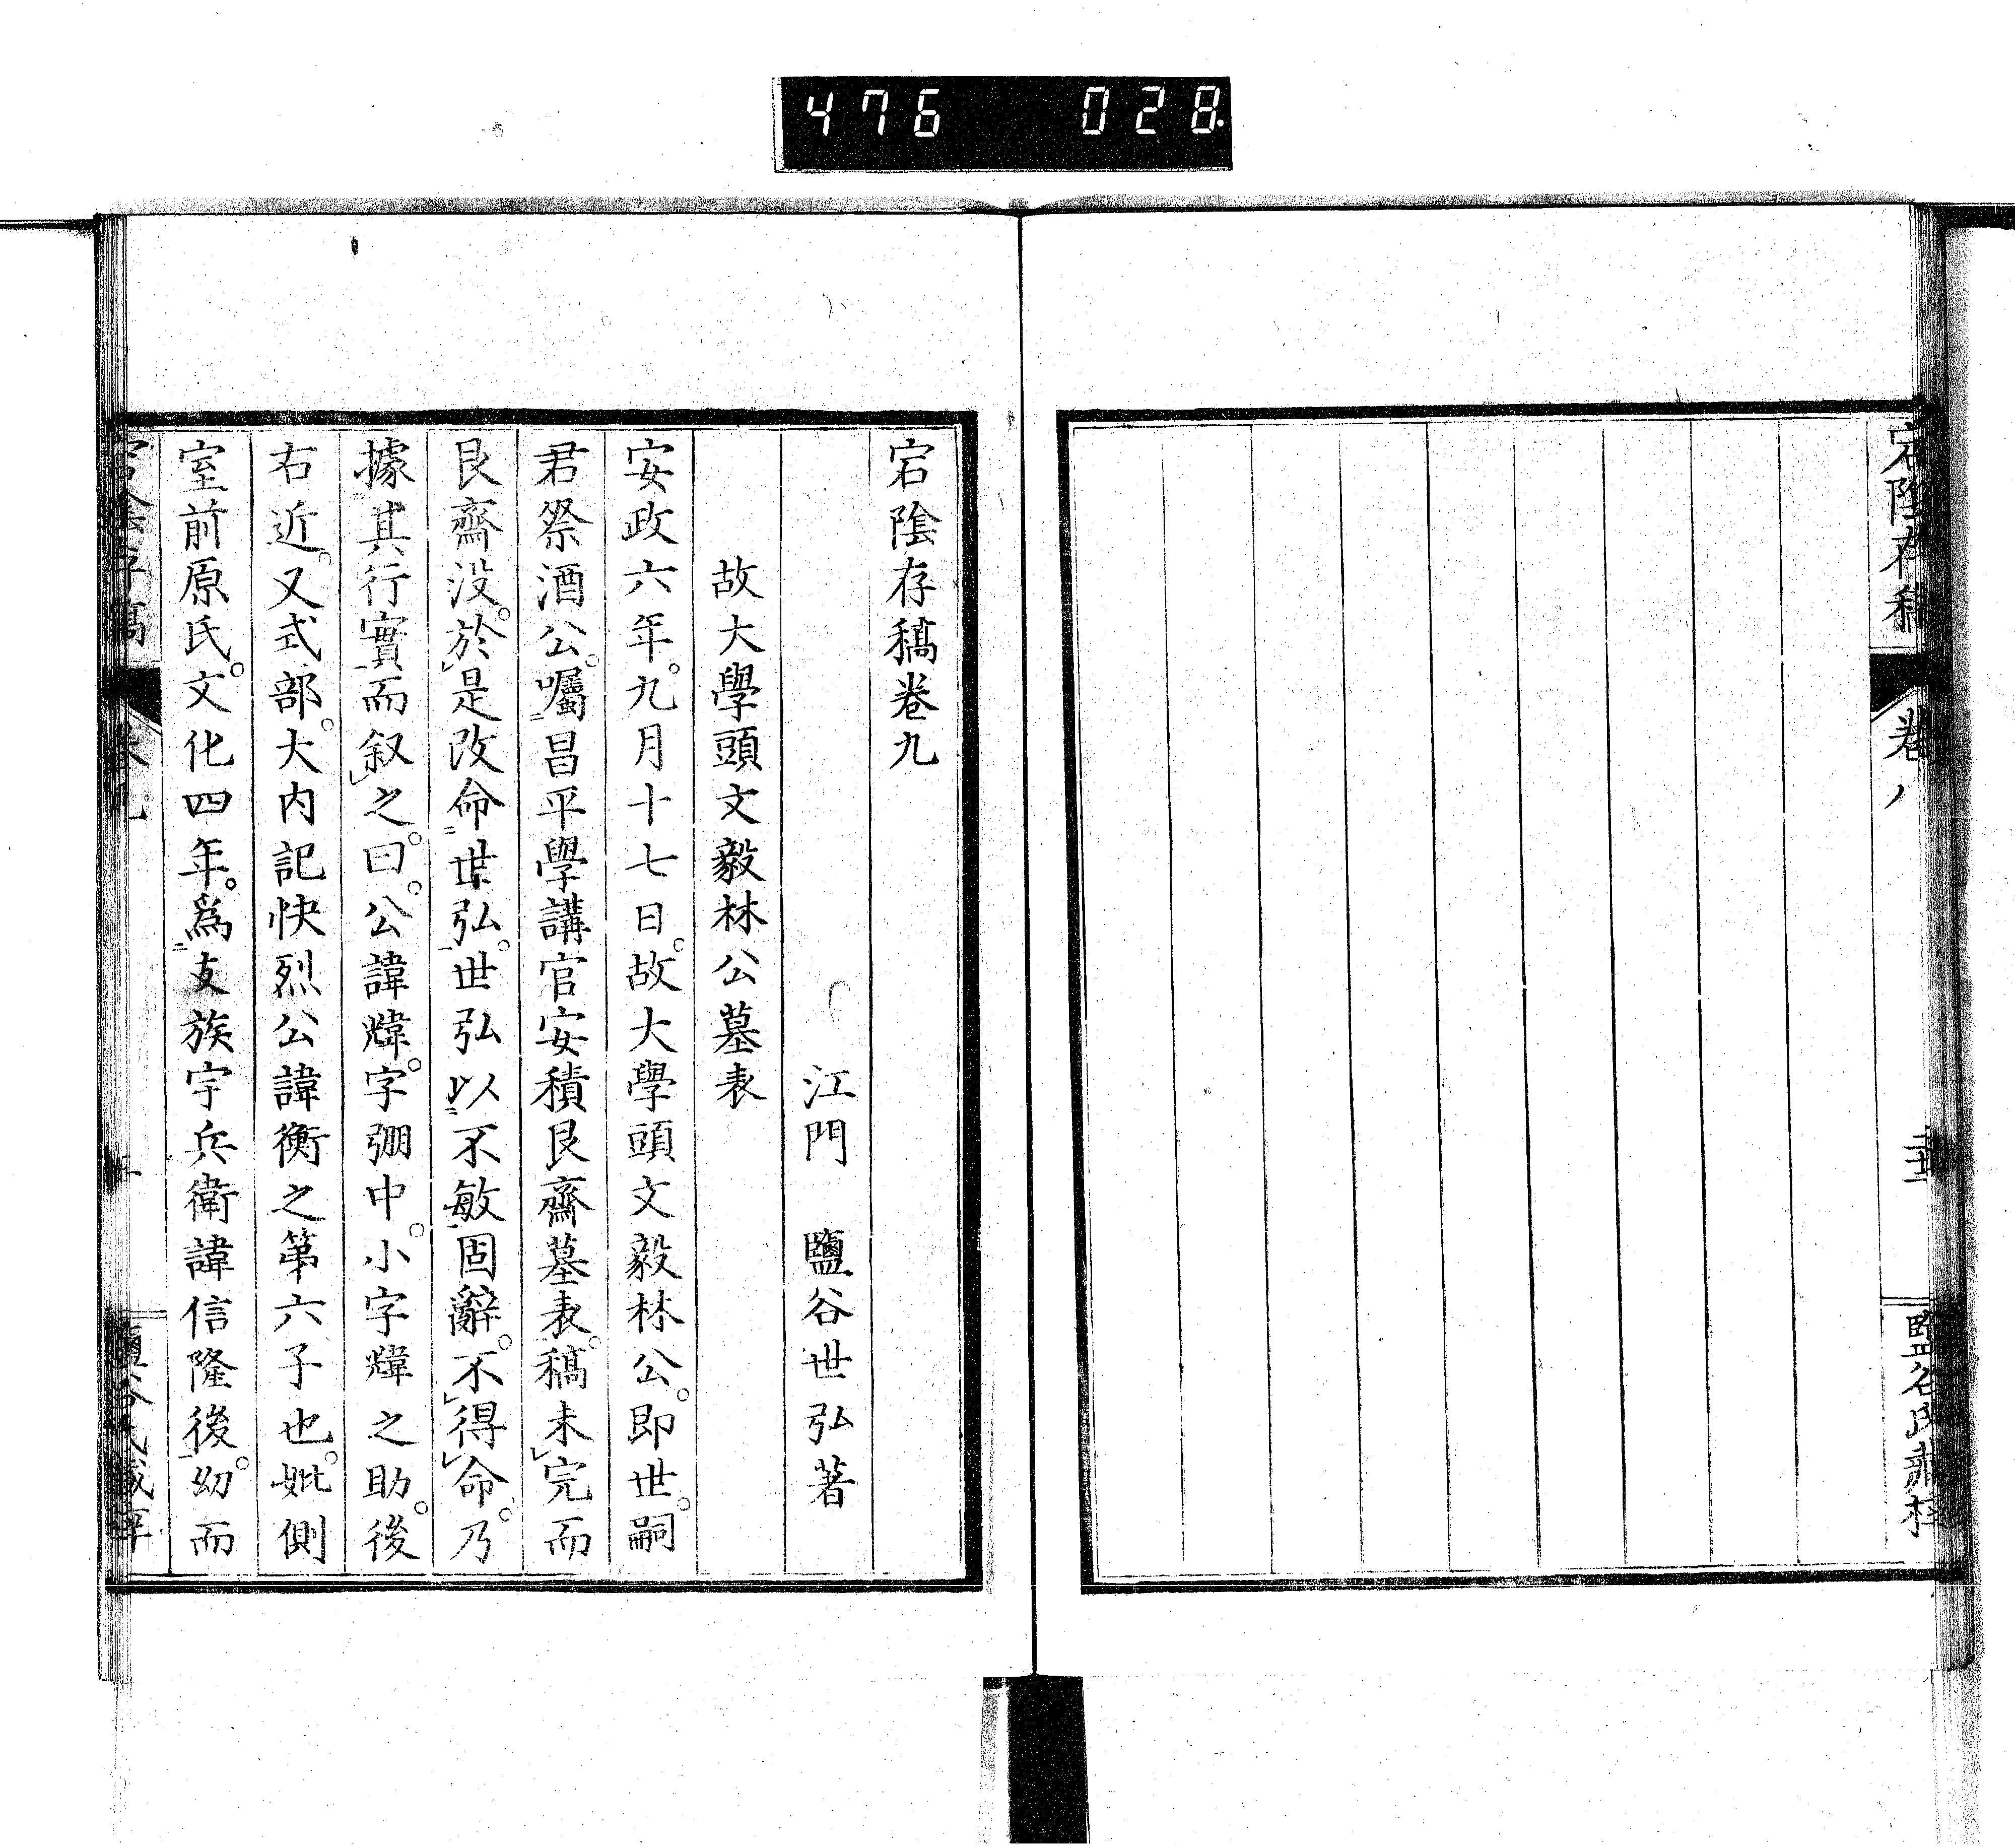 476 028
宕陰存稿 卷八 鹽谷氏藏梓
宕陰存稿卷九
江門 鹽谷世弘著
故大學頭文毅林公墓表
安政六年。九月十七日。故大學頭文毅林公。即世。嗣
君祭酒公。囑昌平學講官安積艮齋墓表。稿未完而
艮齋没。於是改命世弘。世弘以不敏固辭。不得命。乃
據其行實而叙之。曰。公諱煒。字弸中。小字煒之助。後
右近。又式部。大内記快烈公諱衡之第六子也。妣側
室前原氏。文化四年。爲支族宇兵衛諱信隆後。幼而